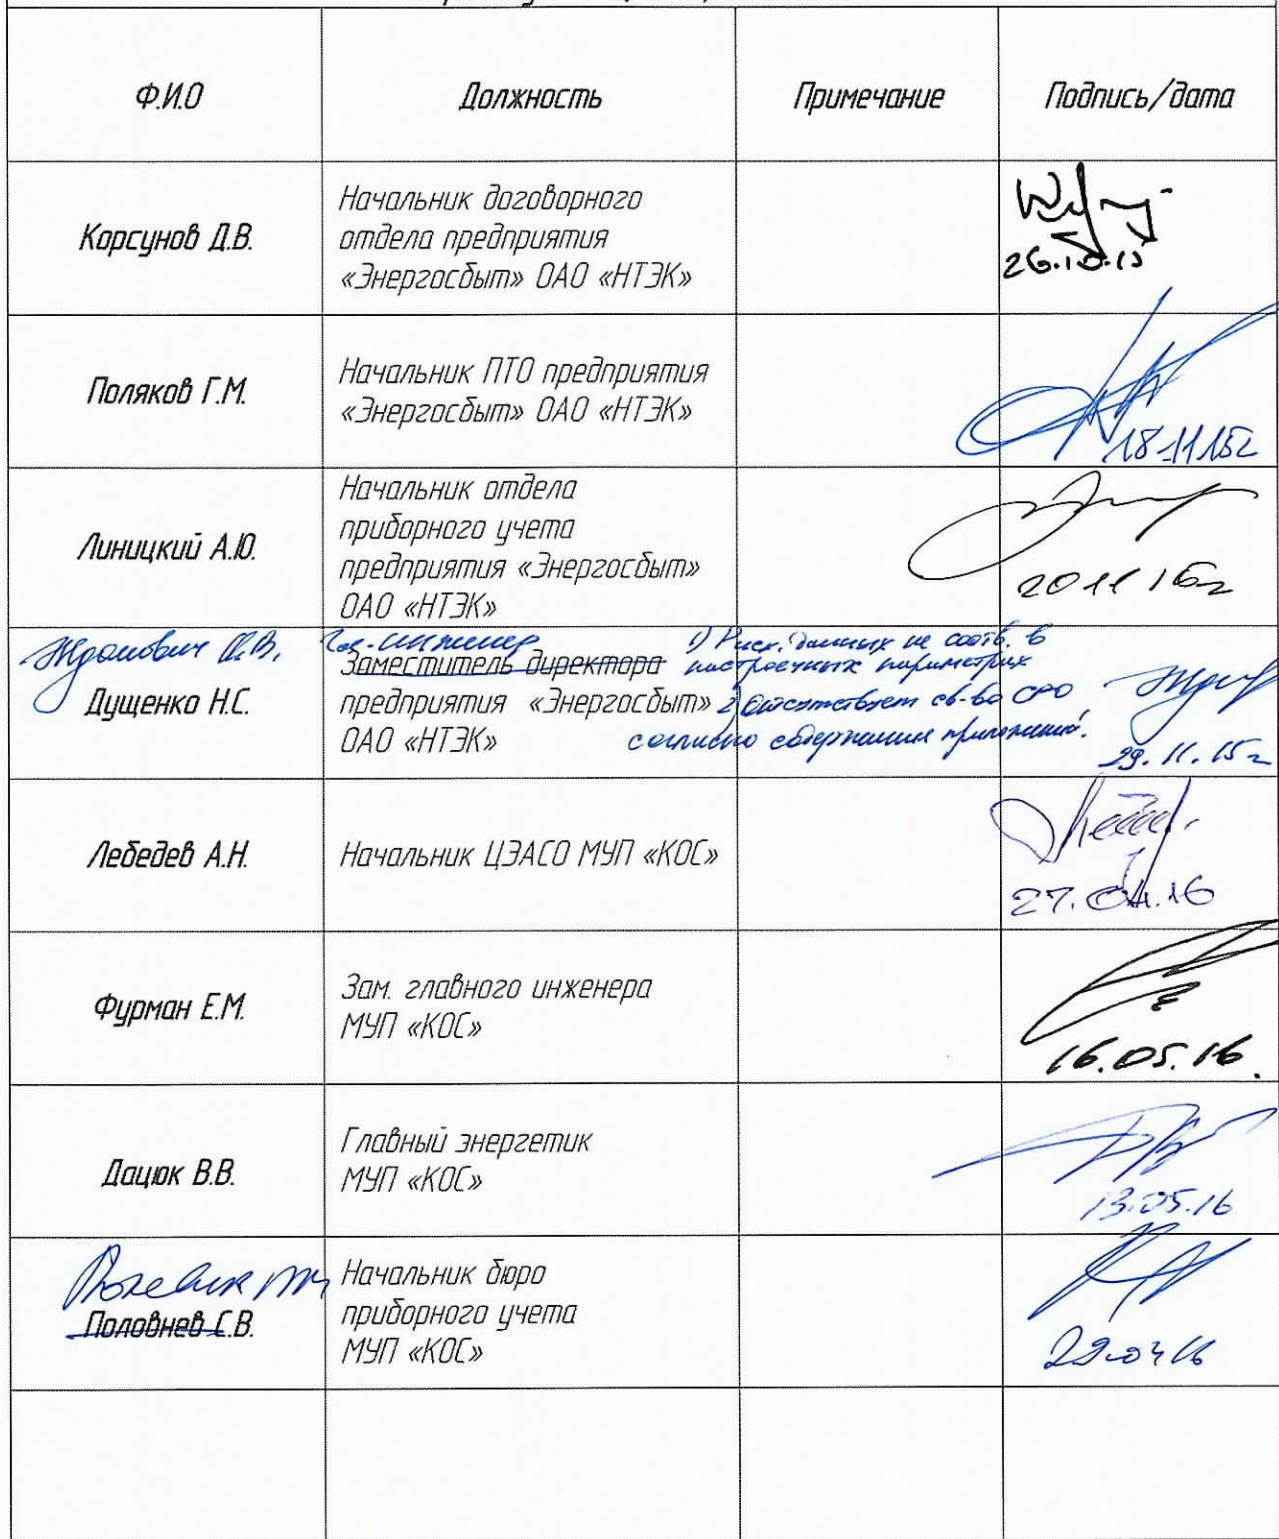 Ф.И.О
Должность
Примечание
Подпись/дата
Корсунов Д.В.
Начальник договорного
отдела предприятия
«Энергосбыт» ОАО «НТЭК»
26.10.15
Поляков Г.М.
Начальник ПТО предприятия
«Энергосбыт» ОАО «НТЭК»
18.11.15г
Линицкий А.Ю.
Начальник отдела
приборного учета
предприятия «Энергосбыт»
ОАО «НТЭК»
20 11 15г
Гл. инженер
Дущенко Н.С.
Заместитель директора
предприятия «Энергосбыт»
ОАО «НТЭК»
1) данных не соотв. в
настроечных параметрах
2) Отсутствует св-во СРО
согласно содержания приложений.
29.11.15г
Лебедев А.Н.
Начальник ЦЭАСО МУП «КОС»
27.04.16
Фурман Е.М.
Зам. главного инженера
МУП «КОС»
16.05.16.
Дацюк В.В.
Главный энергетик
МУП «КОС»
13.05.16
Половнев С.В.
Начальник бюро
приборного учета
МУП «КОС»
29.04 16